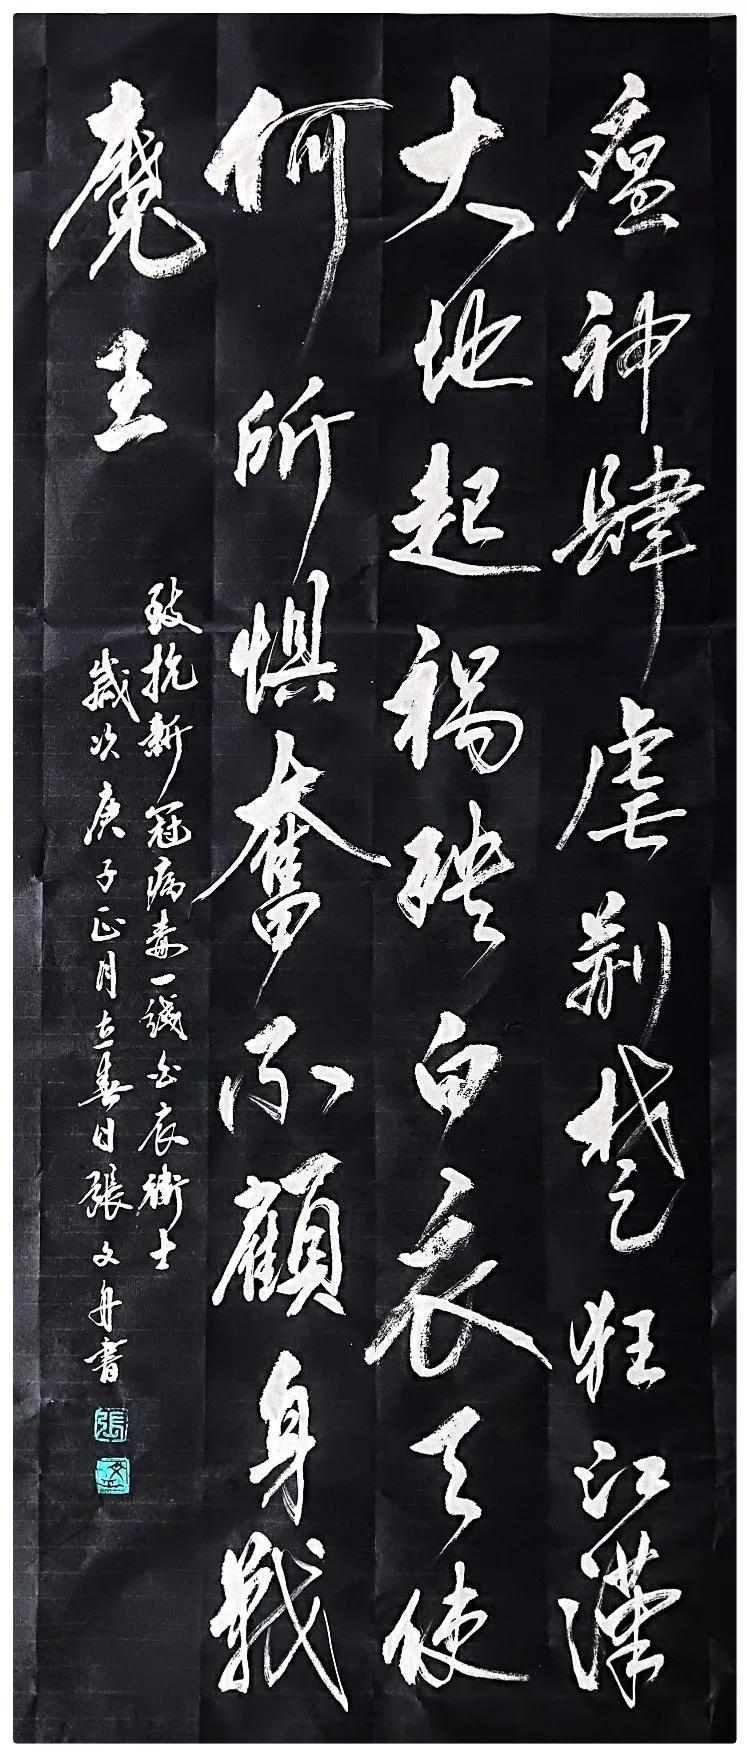 瘟神肆虐荆楚狂江漢
大地起禍殃白衣天使
何所懼奮不顧身戰
魔王
致抗新冠病毒一綫白衣衛士
歲次庚子正月立春日張文舟書
張